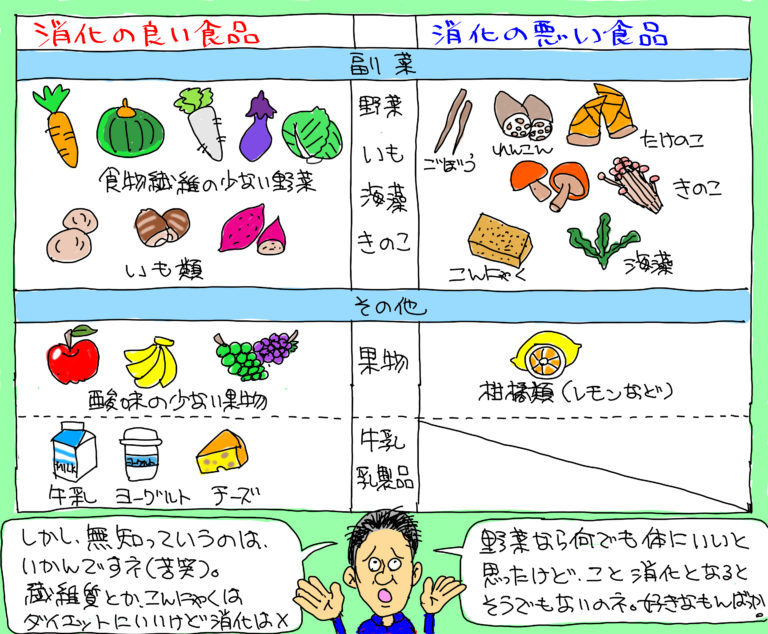 消化の良い食品
消化の悪い食品
副菜
野菜
いも
海藻
きのこ
食物繊維の少ない野菜
いも類
ごぼう
れんこん
たけのこ
きのこ
こんにゃく
海藻
その他
果物
酸味の少ない果物
柑橘類(レモンなど)
牛乳
乳製品
MILK
ヨーグルト
牛乳
ヨーグルト
チーズ
しかし、無知っていうのは、
いかんですネ(苦笑)。
繊維質とか、こんにゃくは
ダイエットにいいけど消化は×
野菜なら何でも体にいいと
思ったけど、こと消化となると
そうでもないのネ。好きなもんばか。